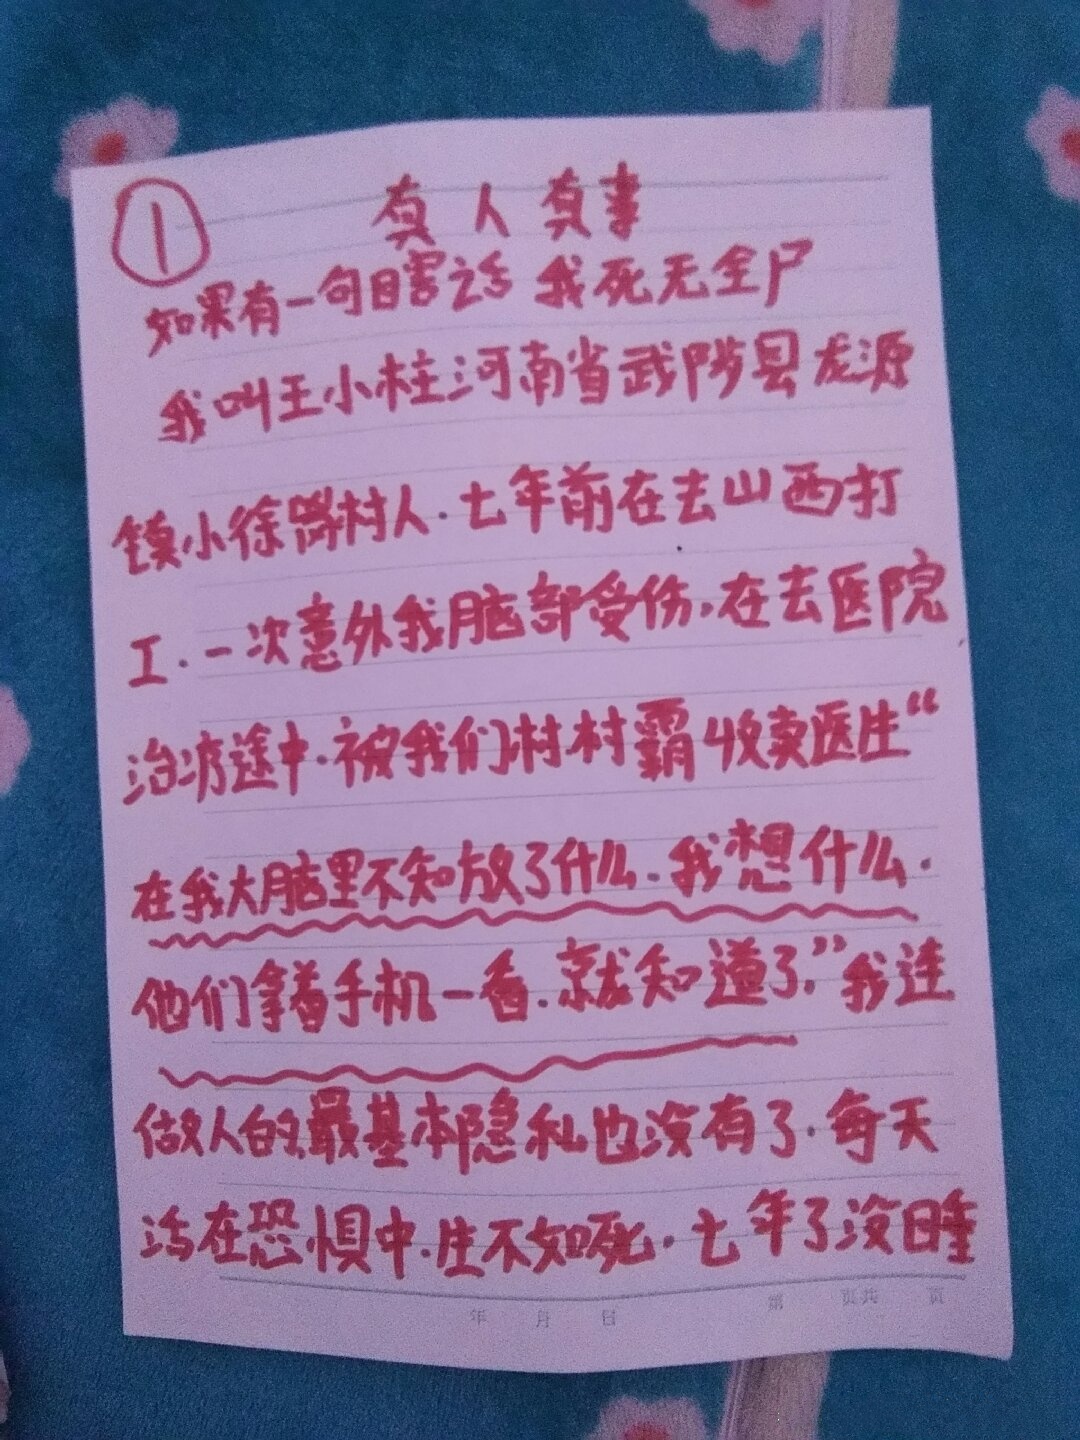 ①
真人真事
如果有一句瞎话 我死无全尸
我叫王小柱河南省武陟县龙源
镇小徐岗村人.七年前在去山西打
工.一次意外我脑部受伤,在去医院
治疗途中.被我们村村霸收卖医生“
在我大脑里不知放了什么.我想什么.
他们拿着手机一看.就知道了,”我连
做人的最基本隐私也没有了.每天
活在恐惧中.生不如死.七年了没睡
年 月 日 第 页共 页